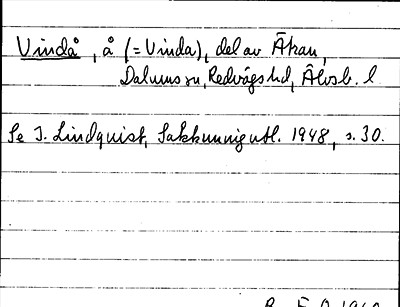 Vindå, å (= Vinda), del av Ätran,
Dalums sn, Redvägs hd, Älvsb. l.
Se I. Lindquist, Sakkunnigutl. 1948, s. 30.